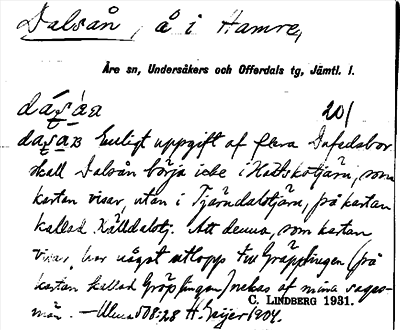 Dalsån, å i Hamre,
Åre sn, Undersåkers och Offerdals tg, Jämtl. l.
20/
Enligt uppgift af flera
skall Dalsån börja icke i som
kartan visar, utan i Tjärndalstjärn, på kartan
kallad Källdalstj. Att denna, som kartan
visar, har något utlopp till Gräpplingen (på
kartan kallad Gröplingen) nekas af mina sages-
män. — Ulma 508:28 H. Geijer 1904.
C. LINDBERG 1931.